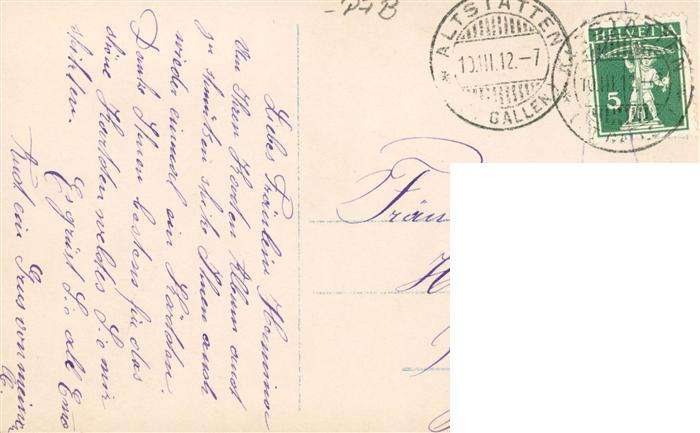 -P4B
ALTSTÄTTEN
10.III.12.-7
(ST. GALLEN)
HELVETIA
5
Liebes Fräulein Hermina
Um Ihren Karten Album auch
zu schmüken schike Ihnen auch
wieder einmal ein Kärtchen.
Danke Ihnen bestens für das
schöne Kärtchen welches Sie mir
schikten.
Es grüst Sie all
Auch ein Grus von meiner
Fräu
H